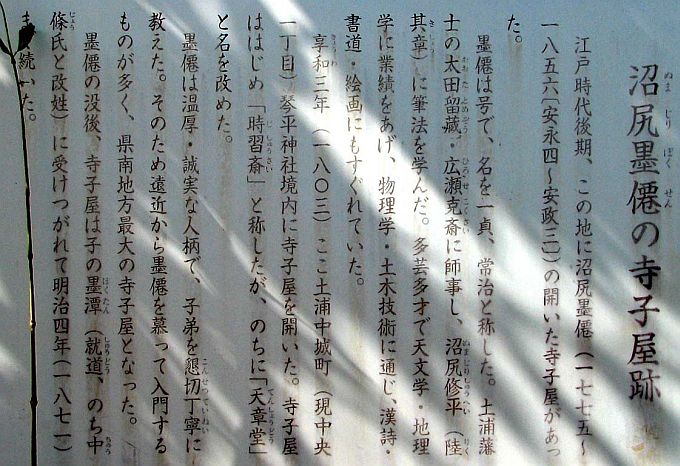 沼尻墨僊の寺子屋跡
江戸時代後期、この地に沼尻墨僊(一七七五〜
一八五六〔安永四〜安政三〕)の開いた寺子屋があっ
た。
墨僊は号で、名を一貞、常治と称した。土浦藩
士の太田留蔵・広瀬克斎に師事し、沼尻修平(陸
其章)に筆法を学んだ。多芸多才で天文学・地理
学に業績をあげ、物理学・土木技術に通じ、漢詩・
書道・絵画にもすぐれていた。
享和三年(一八〇三)ここ土浦中城町(現中央
一丁目)琴平神社境内に寺子屋を開いた。寺子屋
ははじめ「時習斎」と称したが、のちに「天章堂」
と名を改めた。
墨僊は温厚・誠実な人柄で、子弟を懇切丁寧に
教えた。そのため遠近から墨僊を慕って入門する
ものが多く、県南地方最大の寺子屋となった。
墨僊の没後、寺子屋は子の墨潭(就道、のち中
條氏と改姓)に受けつがれて明治四年(一八七一)
まで続いた。